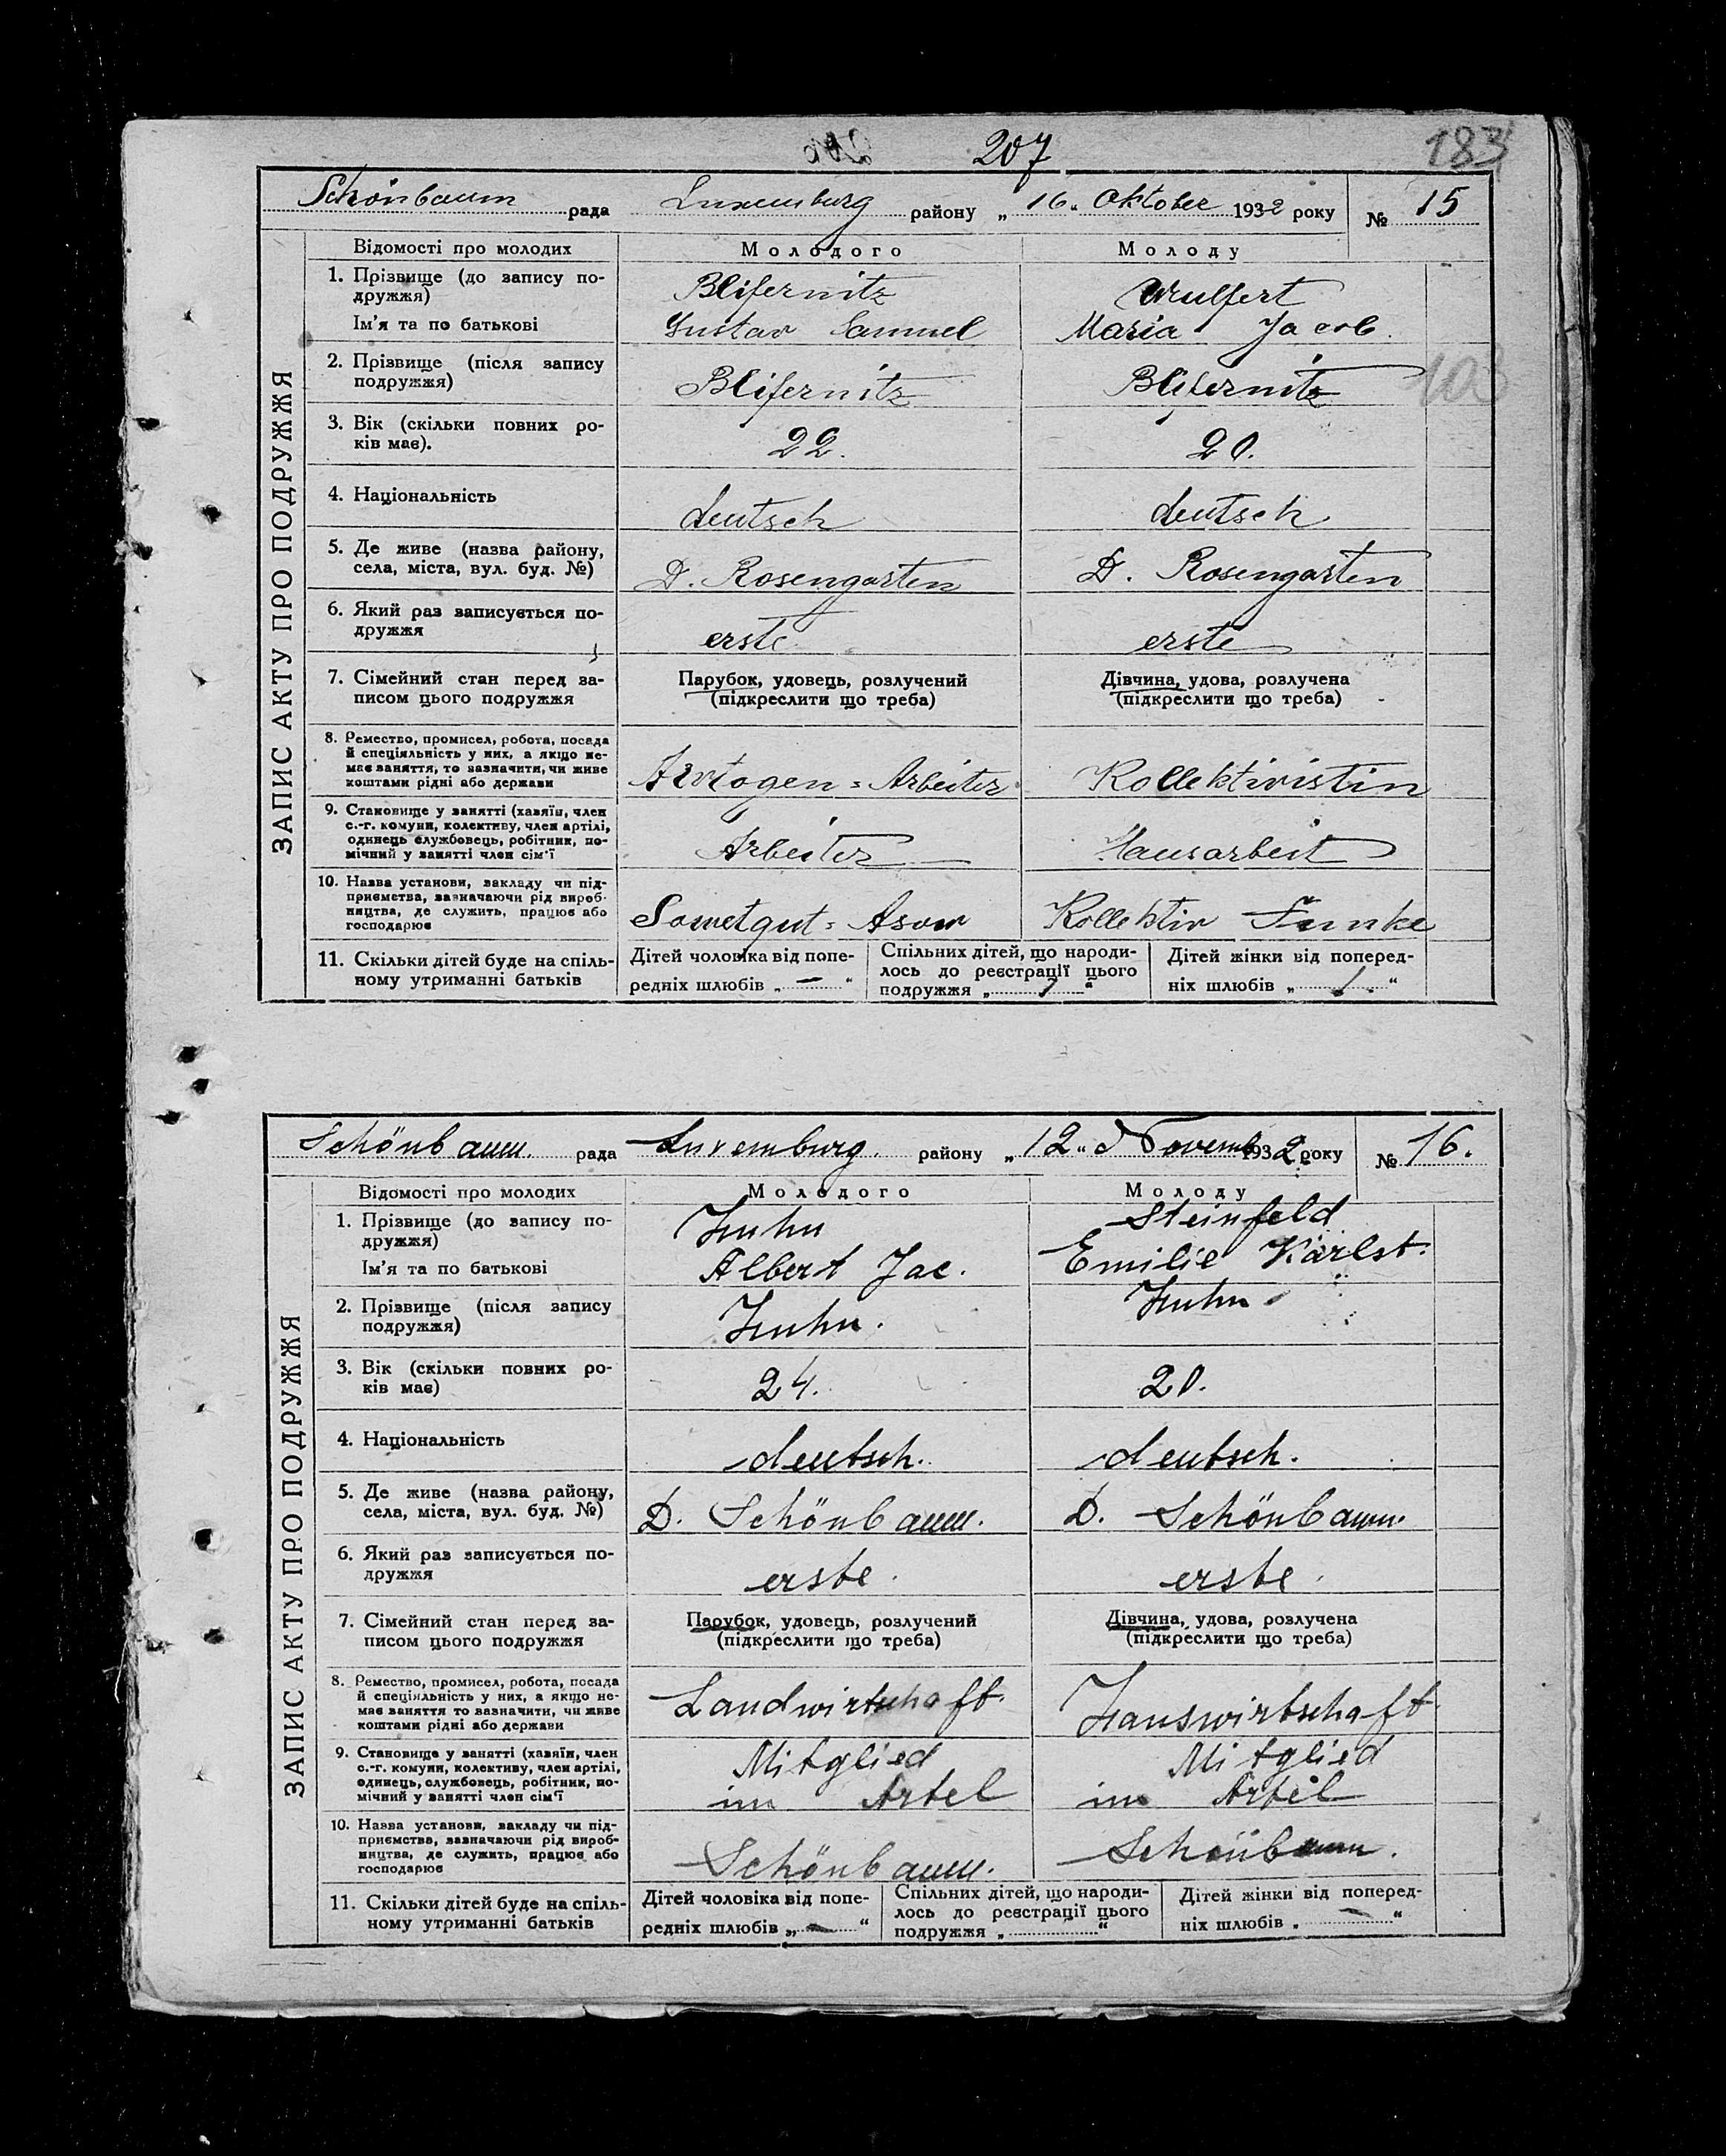 207
183
Schönbaum рада Luxemburg району „16„ Oktober 1932 року № 15
ЗАПИС АКТУ ПРО ПОДРУЖЖЯ
Відомості про молодих Молодого Молоду
1. Прізвище (до запису по-
дружжя) Blifernitz Wulfert
Ім'я та по батькові Gustav Samuel Maria Jacob.
2. Прізвище (після запису
подружжя) Blifernitz Blifernitz
103
3. Вік (скільки повних ро-
ків має). 22. 20.
4. Національність deutsch deutsch
5. Де живе (назва району,
села, міста, вул. буд. №) D. Rosengarten D. Rosengarten
6. Який раз записується по-
дружжя erste erste
7. Сімейний стан перед за- Парубок, удовець, розлучений Дівчина, удова, розлучена
писом цього подружжя (підкреслити що треба) (підкреслити що треба)
8. Ремество, промисел, робота, посада
й спеціяльність у них, а якщо не-
має заняття, то зазначити, чи живе
коштами рідні або держави Avtogen = Arbeiter Kollektivistin
9. Становище у занятті (хазяїн, член
с.-г. комуни, колективу, член артілі,
одинець службовець, робітник, по-
мічний у занятті член сім'ї Arbeiter Hausarbeit
10. Назва установи, закладу чи під-
приємства, зазначаючи рід вироб-
ництва, де служить, працює або
господарює Sowetgut = Asow Kollektiv Funke
11. Скільки дітей буде на спіль- Дітей чоловіка від попе- Спільних дітей, що народи- Дітей жінки від поперед-
ному утриманні батьків редніх шлюбів „ — “ лось до реєстрації цього ніх шлюбів „ “
подружжя „ “
Schönbaum. рада Luxemburg. району „12„ Novemb 1932 року № 16.
ЗАПИС АКТУ ПРО ПОДРУЖЖЯ
Відомості про молодих Молодого Молоду
1. Прізвище (до запису по- Huhn Steinfeld
дружжя)
Ім'я та по батькові Albert Jac. Emilie Karlst.
2. Прізвище (після запису Huhn. Huhn
подружжя)
3. Вік (скільки повних ро-
ків має) 24. 20.
4. Національність deutsch. deutsch.
5. Де живе (назва району,
села, міста, вул. буд. №) D. Schönbaum. D. Schönbaum.
6. Який раз записується по-
дружжя erste. erste.
7. Сімейний стан перед за- Парубок, удовець, розлучений Дівчина, удова, розлучена
писом цього подружжя (підкреслити що треба) (підкреслити що треба)
8. Ремество, промисел, робота, посада
й спеціяльність у них, а якщо не-
має заняття то зазначити, чи живе
коштами рідні або держави Landwirtschaft. Hauswirtschaft
9. Становище у занятті (хазяїн, член Mitglied Mitglied
с.-г. комуни, колективу, член артілі,
одинець, службовець, робітник, по-
мічний у занятті член сім'ї im Artel im Artel
10. Назва установи, закладу чи під-
приємства, зазначаючи рід вироб-
ництва, де служить, працює або
господарює Schönbaum. Schönbaum.
11. Скільки дітей буде на спіль- Дітей чоловіка від попе- Спільних дітей, що народи- Дітей жінки від поперед-
ному утриманні батьків редніх шлюбів „ — “ лось до реєстрації цього ніх шлюбів „ — “
подружжя „ “